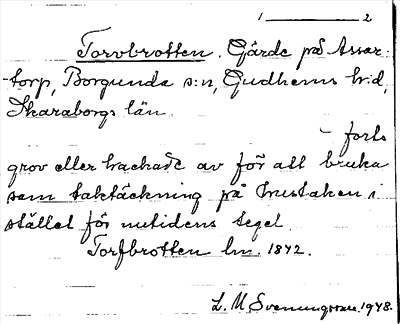 1 ———— 2
Torvbrotten. Gärde på Assar-
torp, Borgunda s:n, Gudhems h:d,
Skaraborgs län.
– forts
grov eller hackade av för att bruka
som taktäckning på hustaken i
stället för nutidens tegel.
Torfbrotten lm. 1872.
L. M Svenungsson. 1948.